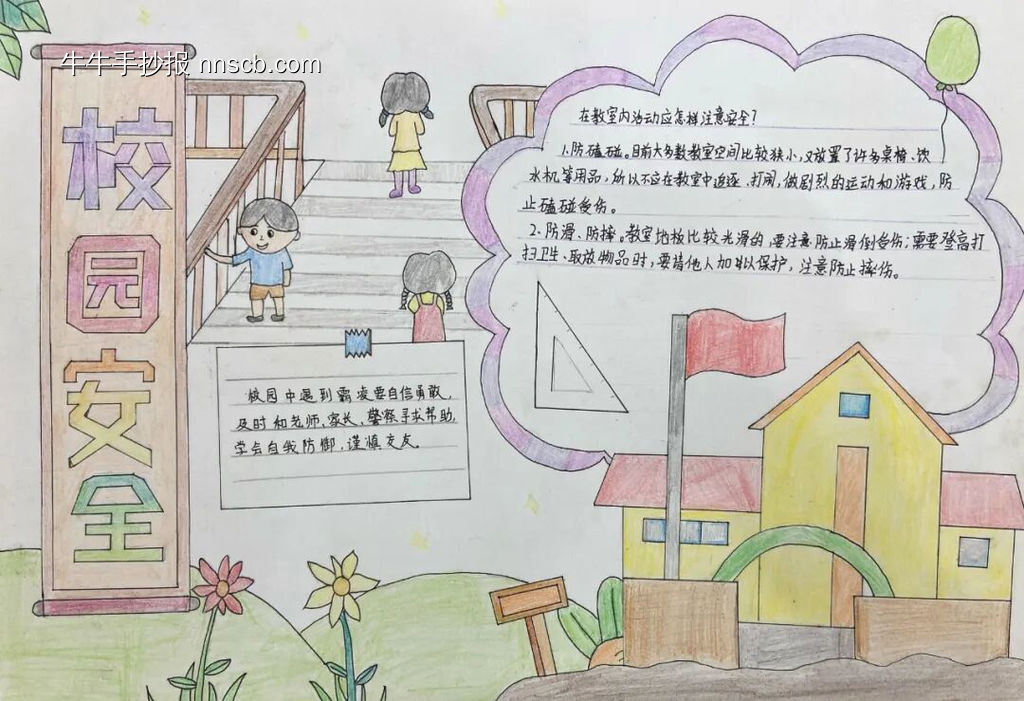 牛牛手抄报 nnscb.com
校园安全
在教室内活动应怎样注意安全?
1.防磕碰。目前大多数教室空间比较狭小,又放置了许多桌椅、饮
水机等用品,所以不应在教室中追逐、打闹,做剧烈的运动和游戏,防
止磕碰受伤。
2、防滑、防摔。教室地板比较光滑的,要注意防止滑倒受伤;需要登高打
扫卫生、取放物品时,要请他人加以保护,注意防止摔伤。
校园中遇到霸凌要自信勇敢,
及时和老师、家长、警察寻求帮助,
学会自我防御,谨慎交友